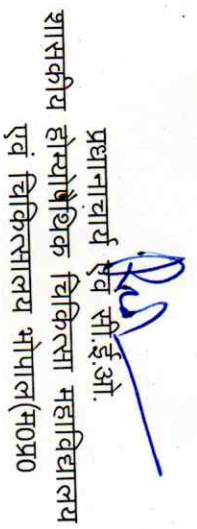 प्रधानाचार्य एवं सी.ई.ओ.
शासकीय होम्योपैथिक चिकित्सा महाविद्यालय
एवं चिकित्सालय भोपाल(म0प्र0